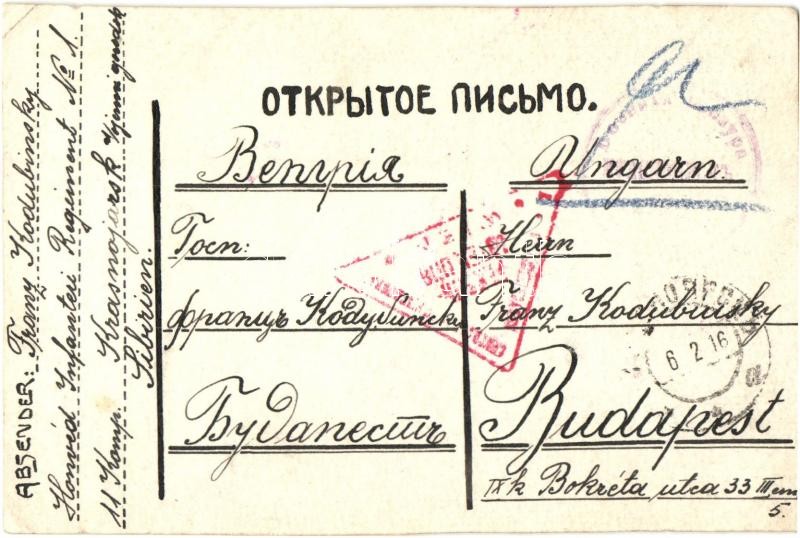 ABSENDER: Franz Kodubinsky
Honvéd Infanteri Regiment No 1
11 Komp. Krasnojarsk
Sibirien.
ОТКРЫТОЕ ПИСЬМО.
Венгрія
Госп:
францъ Кодубински
Будапестъ
Ungarn.
Herrn
Franz Kodubinsky
Budapest
IX k Bokréta utca 33 III em
5.
6 2 16